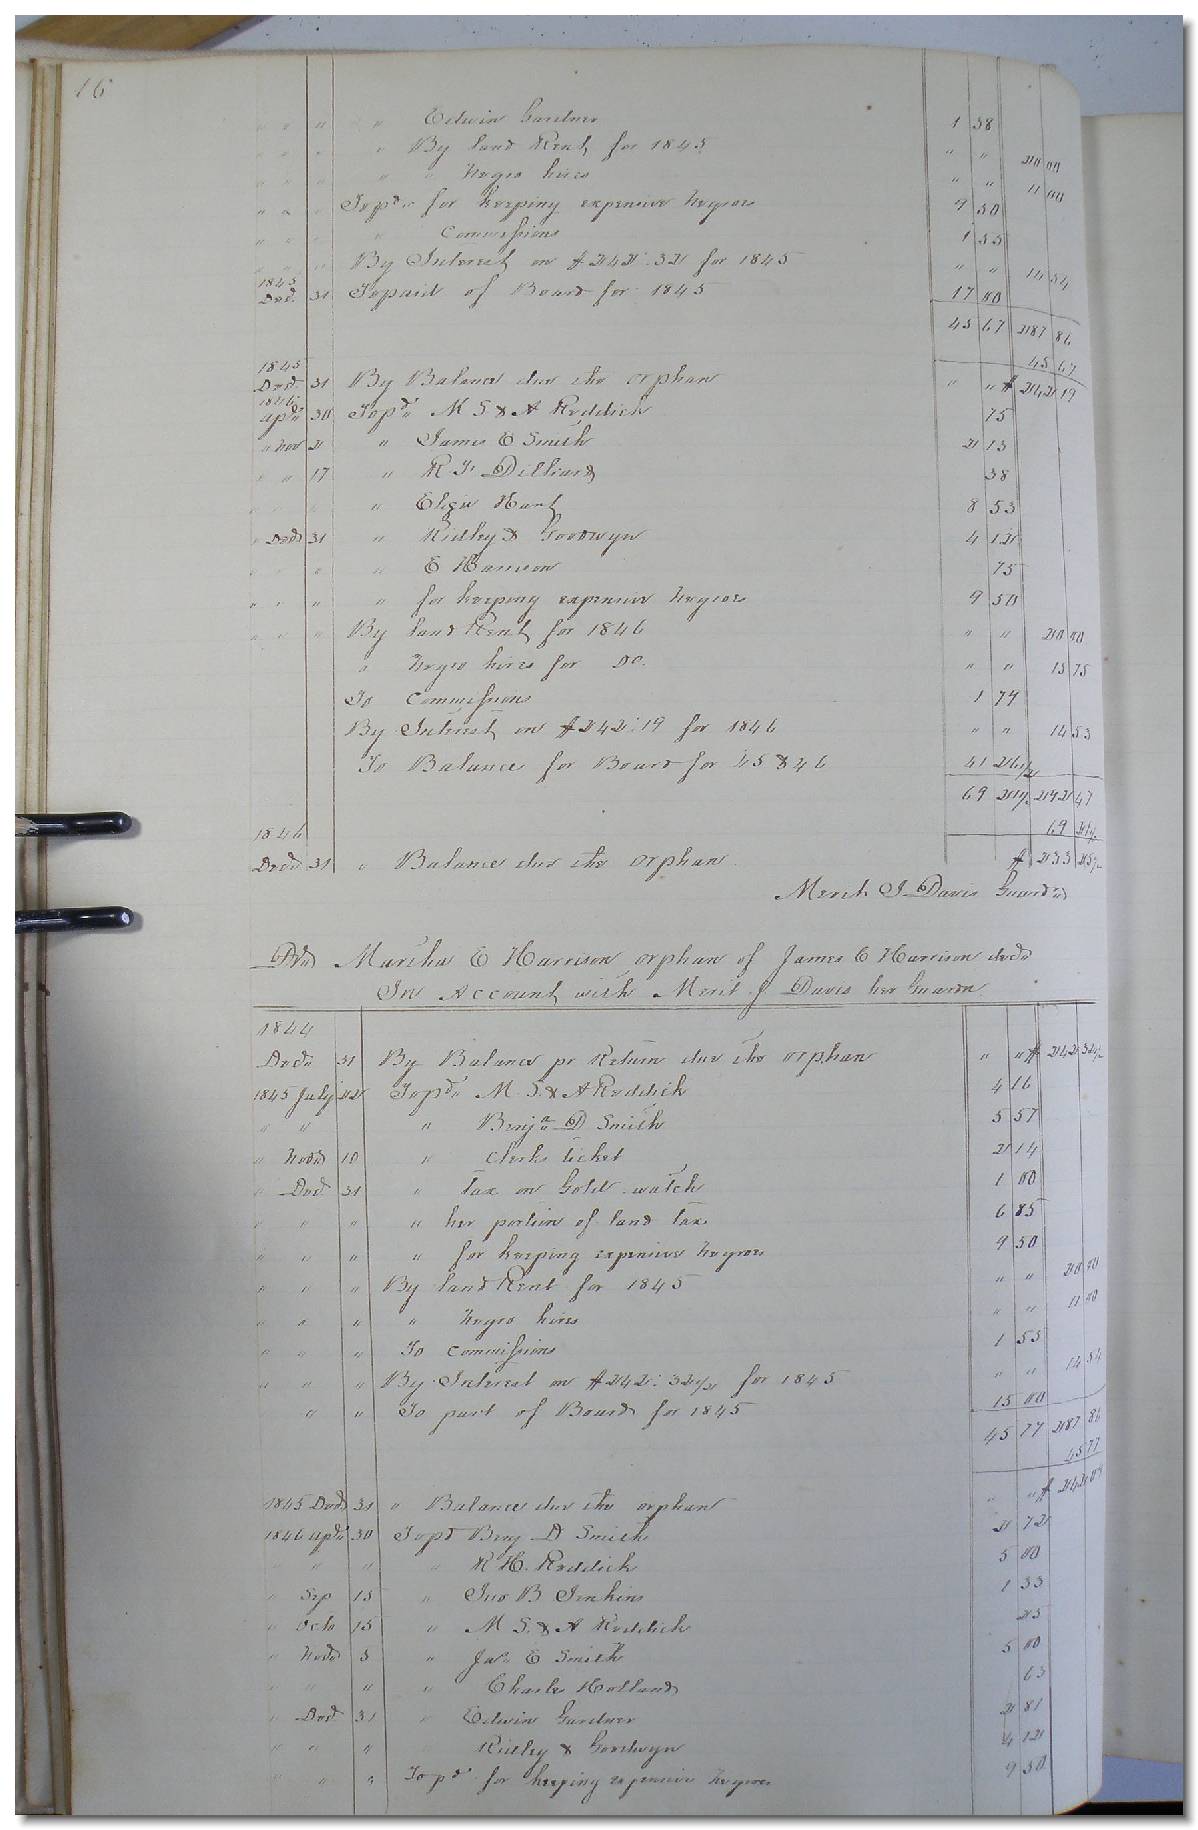 16
" " " " Edwin Gardner 1 38
" " " " By land Rent for 1845 " " 20 00
" " " " " Negro hires " " 11 00
" " " To pd. for keeping expensive negroes 9 50
" " " " Commissions 1 55
" " " By Interest on $242.32 for 1845 " " 14 54
1845
Decr. 31 To paid of Board for 1845 17 00
45 67 287 86
45 67
1845
Decr. 31 By Balance due the orphan " " $ 242 19
1846
Apl. 30 To pd. M S & A Reddick 75
" Nov 2 " James E Smith 2 13
" " 17 " R T Dilliard 38
" " Hart 8 53
" Decr 31 " Ridley & Goodwyn 4 12
" " " " E Harrison 75
" " " " for keeping expensive Negroes 9 50
" " " By land Rent for 1846 " " 20 00
" Negro hires for Do. " " 15 75
To Commissions 1 74
By Interest on $242.19 for 1846 " " 14 53
To Balance for Board for 45 & 46 41 26 1/2
69 21 1/2 292 47
69 21 1/2
1846
Decr 31 " Balance due the orphan $ 223 25 1/2
Merit J Davis Guardn
Dr. Martha E Harrison orphan of James E Harrison decd
In Account with Merit J Davis her Guardn
1844
Decr 31 By Balance pr Return due the orphan " " $ 242 32 1/2
1845 July 22 To pd. M. S. & A Reddick 4 16
" " " Benja D Smith 5 57
" Novr 10 " Clerks ticket 2 14
" Decr 31 " Tax on Gold watch 1 00
" " " " her portion of land tax 6 85
" " " " for keeping expensive negroes 9 50
" " " By land Rent for 1845 " " 20 00
" " " " Negro hires " " 11 00
" " " To Commissions 1 55
" " " By Interest on $242.32 1/2 for 1845 " " 14 54
" " To part of Board for 1845 15 00
45 77 287 86
45 77
1845 Decr 31 " Balance due the orphan " " $ 242 09
1846 Apl. 30 To pd Benj D Smith 2 72
" " " " R H. Reddick 5 00
" Sep 15 " Jno B Jenkins 1 33
" Octo 15 " M S. & A Reddick 25
" Novr 3 " Jas E Smith 5 00
" " " " Charles Holland 63
" Decr 31 " Edwin Gardner 2 81
" " " Ridley & Goodwyn 4 12
" " " To pd for keeping expensive negroes 9 50